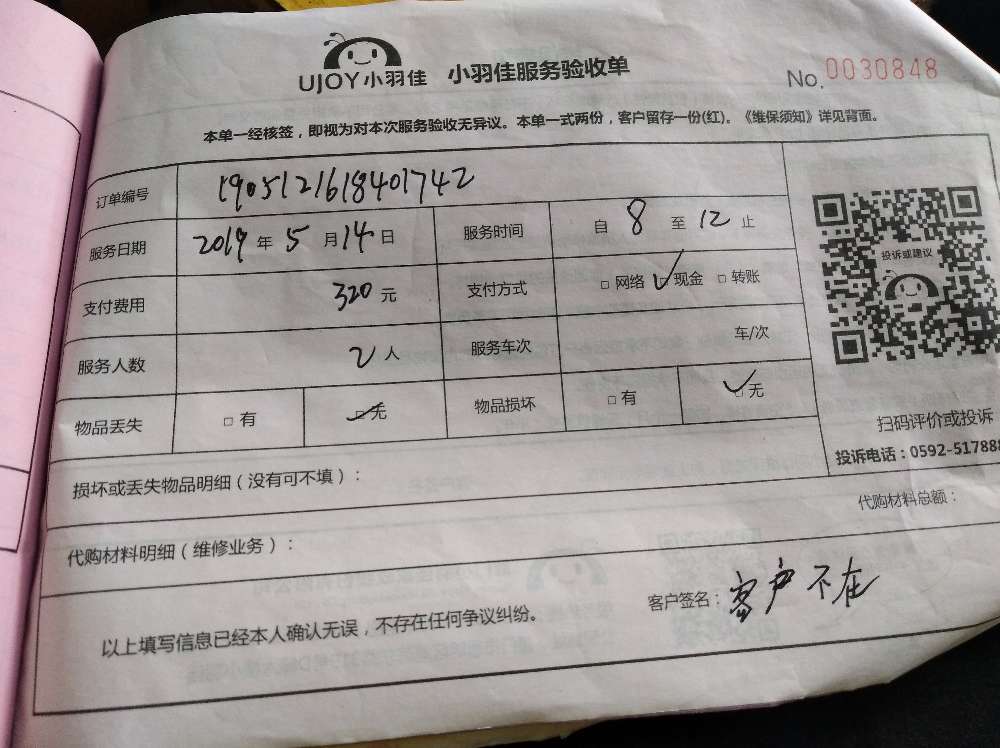 UJOY小羽佳 小羽佳服务验收单 No.0030848
本单一经核签，即视为对本次服务验收无异议。本单一式两份，客户留存一份(红)。《维保须知》详见背面。
订单编号 1905121618401742
服务日期 2019年5月14日 服务时间 自8至12止
支付费用 320元 支付方式 □网络 □现金 □转账
服务人数 2人 服务车次 车/次
物品丢失 □有 □无 物品损坏 □有 □无
投诉或建议
扫码评价或投诉
投诉电话：0592-517888
损坏或丢失物品明细（没有可不填）：
代购材料明细（维修业务）： 代购材料总额：
以上填写信息已经本人确认无误，不存在任何争议纠纷。 客户签名：客户不在